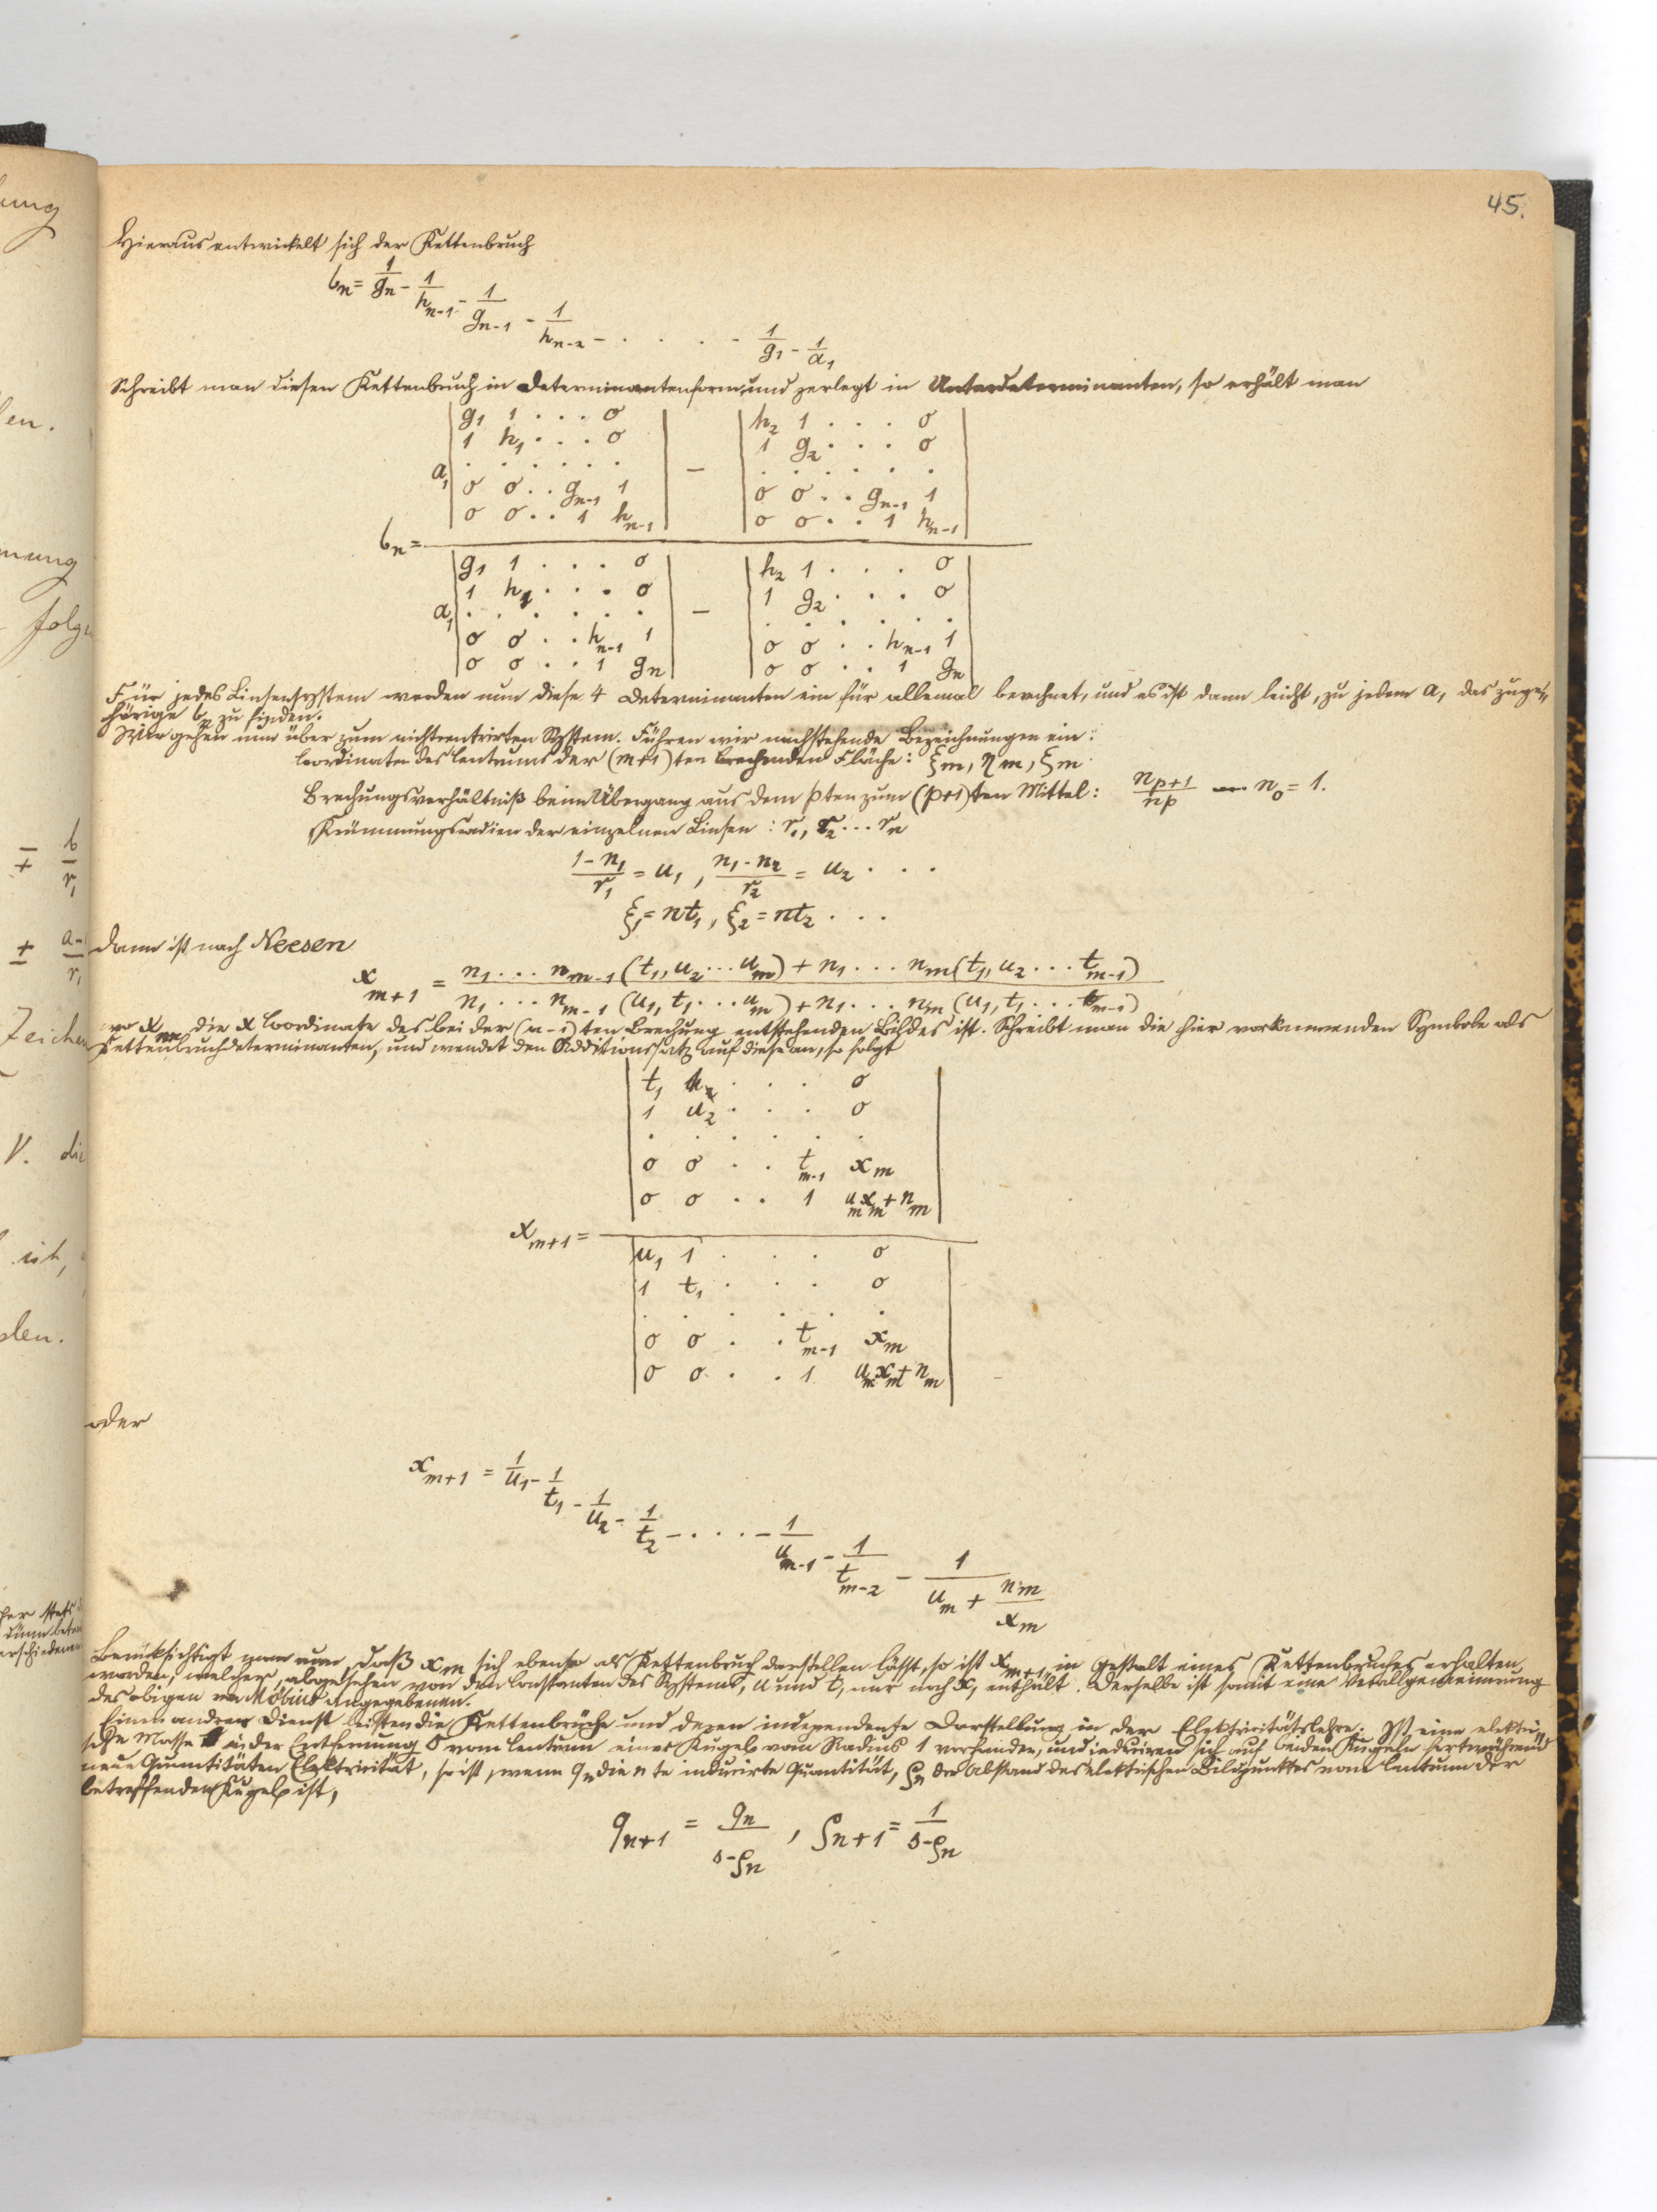 45.
Hieraus entwickelt sich der Kettenbruch
b_n = 1/g_n - 1/h_{n-1} - 1/g_{n-1} - 1/h_{n-2} - . . . . - 1/g_1 - 1/a_1
Schreibt man diesen Kettenbruch in Determinantenform und zerlegt in Unterdeterminanten, so erhält man
g_1 1 . . . 0 h_2 1 . . . 0
1 h_1 . . . 0 1 g_2 . . . 0
a_1 . . . . . . - . . . . . .
0 0 . . g_{n-1} 1 0 0 . . g_{n-1} 1
0 0 . . 1 h_{n-1} 0 0 . . 1 h_{n-1}
b_n =
g_1 1 . . . 0 h_2 1 . . . 0
1 h_1 . . . 0 1 g_2 . . . 0
a_1 . . . . . . - . . . . . .
0 0 . . h_{n-1} 1 0 0 . . h_{n-1} 1
0 0 . . 1 g_n 0 0 . . 1 g_n
Für jedes Linsensystem werden nun diese 4 Determinanten ein für allemal berechnet, und es ist dann leicht, zu jedem a_1 das zuge„
hörige b_n zu finden.
Wir gehen nun über zum nichtcentrirten System. Führen wir nachstehende Bezeichnungen ein:
Coordinaten des Centrums der (m+1)ten brechenden Fläche: ξ_m, η_m, ξ_m.
Brechungsverhältniß beim Übergang aus dem pten zum (p+1)ten Mittel: n_{p+1}/n_p n_0 = 1.
Krümmungsradien der einzelnen Linsen: r_1, r_2 ... r_n
(1-n_1)/r_1 = u_1, (n_1-n_2)/r_2 = u_2 . . .
ξ_1 = nt_1, ξ_2 = nt_2 . . .
dann ist nach Neesen
x_{m+1} = (n_1 ... n_{m-1} (t_1, u_2 ... u_m) + n_1 ... n_m (t_1, u_2 ... t_{m-1})) / (n_1 ... n_{m-1} (u_1, t_1 ... u_m) + n_1 ... n_m (u_1, t_1 ... t_{m-1}))
wo x_m die x Coordinate des bei der (n-1)ten Brechung entstehenden Bildes ist. Schreibt man die hier vorkommenden Symbole als
Kettenbruchdeterminanten, und wendet den Additionssatz auf diese an, so folgt
t_1 . . . 0
1 u_2 . . . 0
. . . . . .
0 0 . . t_{m-1} x_m
0 0 . . 1 u_m x_m + n_m
x_{m+1} =
u_1 1 . . . 0
1 t_1 . . . 0
. . . . . .
0 0 . . t_{m-1} x_m
0 0 . . 1 u_m x_m + n_m
oder
x_{m+1} = 1/u_1 - 1/t_1 - 1/u_2 - 1/t_2 - . . . - 1/u_{m-1} - 1/t_{m-2} - 1/(u_m + n_m/x_m)
Berücksichtigt man nun, daß x_m sich ebenso als Kettenbruch darstellen lässt, so ist x_{m+1} in Gestalt eines Kettenbruches erhalten
worden, welcher, abgesehen von den Constanten des Systems, u und t, nur noch x_1 enthält. Derselbe ist somit eine Verallgemeinerung
des obigen von Möbius angegebenen.
Einen andren Dienst leisten die Kettenbrüche und deren independente Darstellung in der Elektricitätslehre. Ist eine elektri„
sche Masse in der Entfernung vom Centrum einer Kugel vom Radius 1 vorhanden, und induciren sich auf beiden Kugeln fortwährend
neue Quantitäten Elektricität, so ist, wenn q_n die n te inducirte Quantität, ρ_n der Abstand des elektrischen Bildpunktes vom Centrum der
betreffenden Kugel ist,
q_{n+1} = q_n/(s-ρ_n), ρ_{n+1} = 1/(s-ρ_n)